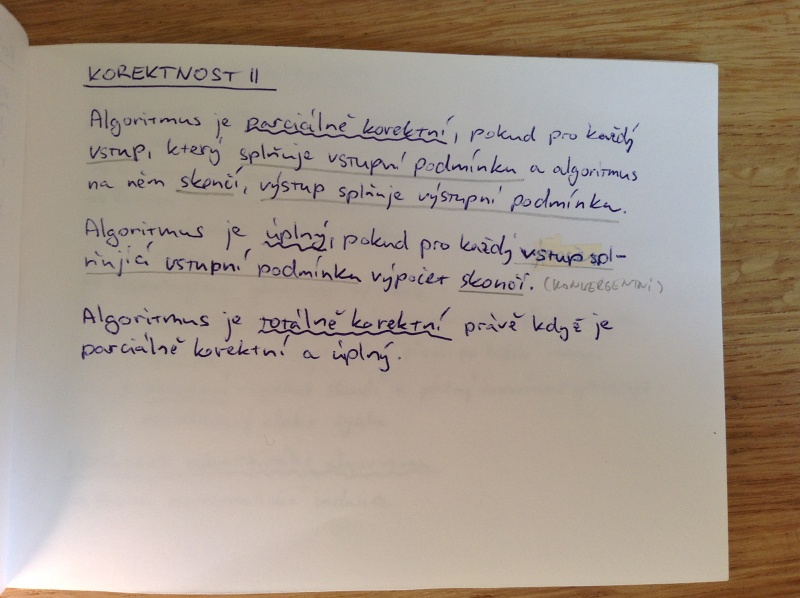 KOREKTNOST II
Algoritmus je parciálně korektní, pokud pro každý
vstup, který splňuje vstupní podmínku a algoritmus
na něm skončí, výstup splňuje výstupní podmínku.
Algoritmus je úplný, pokud pro každý vstup spl-
ňující vstupní podmínku výpočet skončí. (KONVERGENTNÍ)
Algoritmus je totálně korektní právě když je
parciálně korektní a úplný.